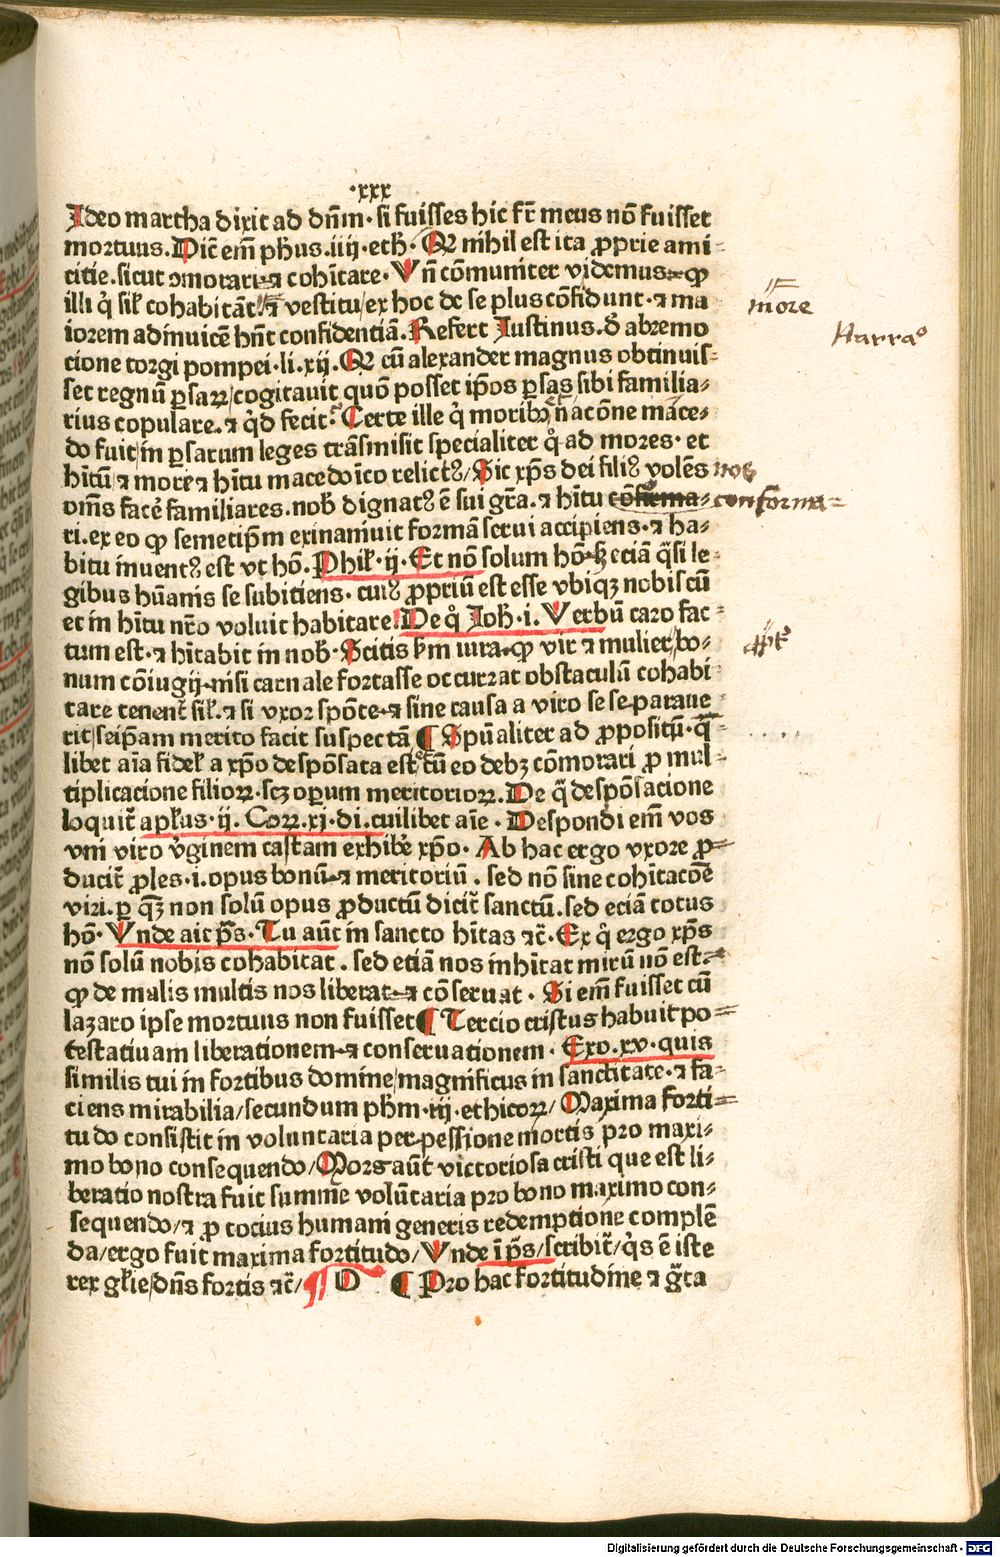 .xxx
Ideo martha dixit ad dñm. si fuisses hic fr̄ meus nõ fuisset
mortuus. Dic̄ em̄ ph̄us. iiij. eth̄. Q2 nihil est ita ꝓprie ami-
citie. sicut ↄmorari ⁊ coh̄itare. Vñ cõmuniter videmus ꝙ
illi q̇ sil̄ cohabitãt ⁊ vestitu/ex hoc de se plus cõfidunt. ⁊ ma
iorem adinuicē hñt confidentiã. Refert Iustinus. ð abremo
tione torgi pompei. li. xij. Q2 cũ alexander magnus obtinuis-
set regnũ ꝑsaꝝ/cogitauit quõ posset ip̄os ꝑsas sibi familia-
rius copulare. ⁊ q̇d fecit. Certe ille q̇ moribꝫ ñacõne mãce-
do fuit/in ꝑsarum leges trãsmisit specialiter q̊ ad mores. et
hītũ ⁊ more ⁊ hītu macedoīco relictꝰ/Sic xp̄s dei filiꝰ volēs nos
om̄s facē familiares. nob̄ dignatꝰ ē sui gr̄a. ⁊ hītu cõfirma- conf̄orma-
ri. ex eo ꝙ semetip̄m exinaniuit formã serui accipiens. ⁊ ha-
bitu inuentꝰ est vt hõ. Phil̄. ij. Et nõ solum hõ. ſꝫ eciã q̄si le-
gibus hũanis se subitiens. cuiꝰ ꝓpriũ est esse vbiqꝫ nobiscũ
et in hītu nr̄o voluit habitare. De q̊ Ioh̄. i. Verbũ caro fac-
tum est. ⁊ hītabit in nob̄. Scitis h̄m iura. ꝙ vir ⁊ mulier/bo-
num cõiugij. nisi carnale fortasse occurrat obstaculũ cohabi
tare tenent̄ sil̄. ⁊ si vxor spõte ⁊ sine causa a viro se separaue
rit/seip̄am merito facit suspectã ¶ Spũaliter ad ꝓpositũ. q̄
libet aīa fidel̄ a xp̄o despõsata est cũ eo debꝫ cõmorari ꝓ mul-
tiplicacione filioꝝ. scꝫ oꝑum meritorioꝝ. De q̄ despõsacione
loquit̄ apl̄us. ij. Coꝝ. xj. di. cuilibet aīe. Despondi em̄ vos
vni viro v̇ginem castam exhibē xp̄o. Ab hac ergo vxore ꝓ-
ducit̄ ꝓles. i. opus bonũ ⁊ meritoriũ. sed nõ sine coh̄itacõē
viri. ꝑ qꝫ non solũ opus ꝓductũ dicit̄ sanctũ. sed eciã totus
hõ. Vnde ait p̄s. Tu aūt in sancto hītas ⁊c̄. Ex q̇ ergo xp̄s
nõ solũ nobis cohabitat. sed etiã nos inh̄itat mirũ nõ est
ꝙ de malis multis nos liberat ⁊ cõseruat. Si em̄ fuisset cũ
lazaro ipse mortuus non fuisset ¶ Tercio cristus habuit po-
testatiuam liberationem ⁊ conseruationem. Exo. xv. quis
similis tui in fortibus domine/magnificus in sanctitate. ⁊ fa-
ciens mirabilia/secundum ph̄m. iij. ethicoꝝ/Maxima forti-
tudo consistit in voluntaria perpessione mortis pro maxi-
mo bono consequendo/Mors aūt victoriosa cristi que est li-
beratio nostra fuit summe volũtaria pro bono maximo con-
sequendo/⁊ ꝓ tocius humani generis redemptione complē
da/ergo fuit maxima fortitudo/Vnde ī p̄s/scribit̄/q̇s ē iste
rex gl̄ie/dñs fortis ⁊c̄/ ¶ D ¶ Pro hac fortitudine ⁊ gr̄a
more
Harra°
Digitalisierung gefördert durch die Deutsche Forschungsgemeinschaft - DFG